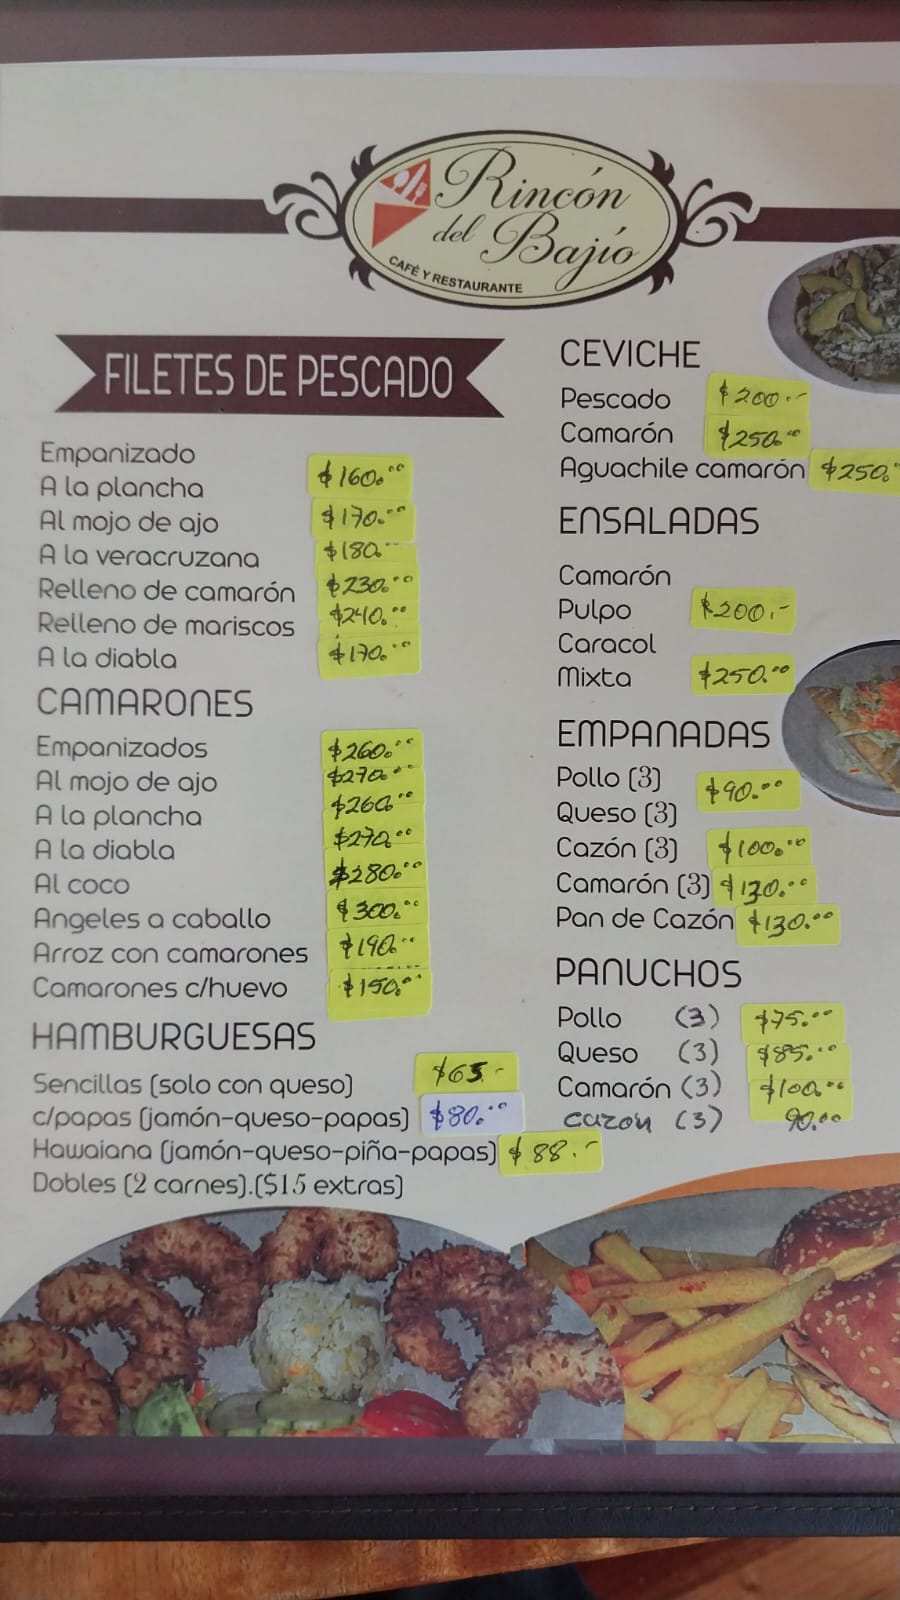 Rincón
del Bajío
CAFÉ Y RESTAURANTE
FILETES DE PESCADO
Empanizado
A la plancha $160.00
Al mojo de ajo $170.00
A la veracruzana $180.00
Relleno de camarón $230.00
Relleno de mariscos $240.00
A la diabla $170.00
CAMARONES
Empanizados $260.00
Al mojo de ajo $270.00
A la plancha $260.00
A la diabla $270.00
Al coco $280.00
Angeles a caballo $300.00
Arroz con camarones $190.00
Camarones c/huevo $150.00
HAMBURGUESAS
Sencillas (solo con queso) $65.-
c/papas (jamón-queso-papas) $80.00
Hawaiana (jamón-queso-piña-papas) $88.-
Dobles (2 carnes).($15 extras)
CEVICHE
Pescado $200.-
Camarón $250.00
Aguachile camarón $250.00
ENSALADAS
Camarón
Pulpo $200.-
Caracol
Mixta $250.00
EMPANADAS
Pollo (3) $90.00
Queso (3)
Cazón (3) $100.00
Camarón (3) $130.00
Pan de Cazón $130.00
PANUCHOS
Pollo (3) $75.00
Queso (3) $85.00
Camarón (3) $100.00
cazon (3) 90.00